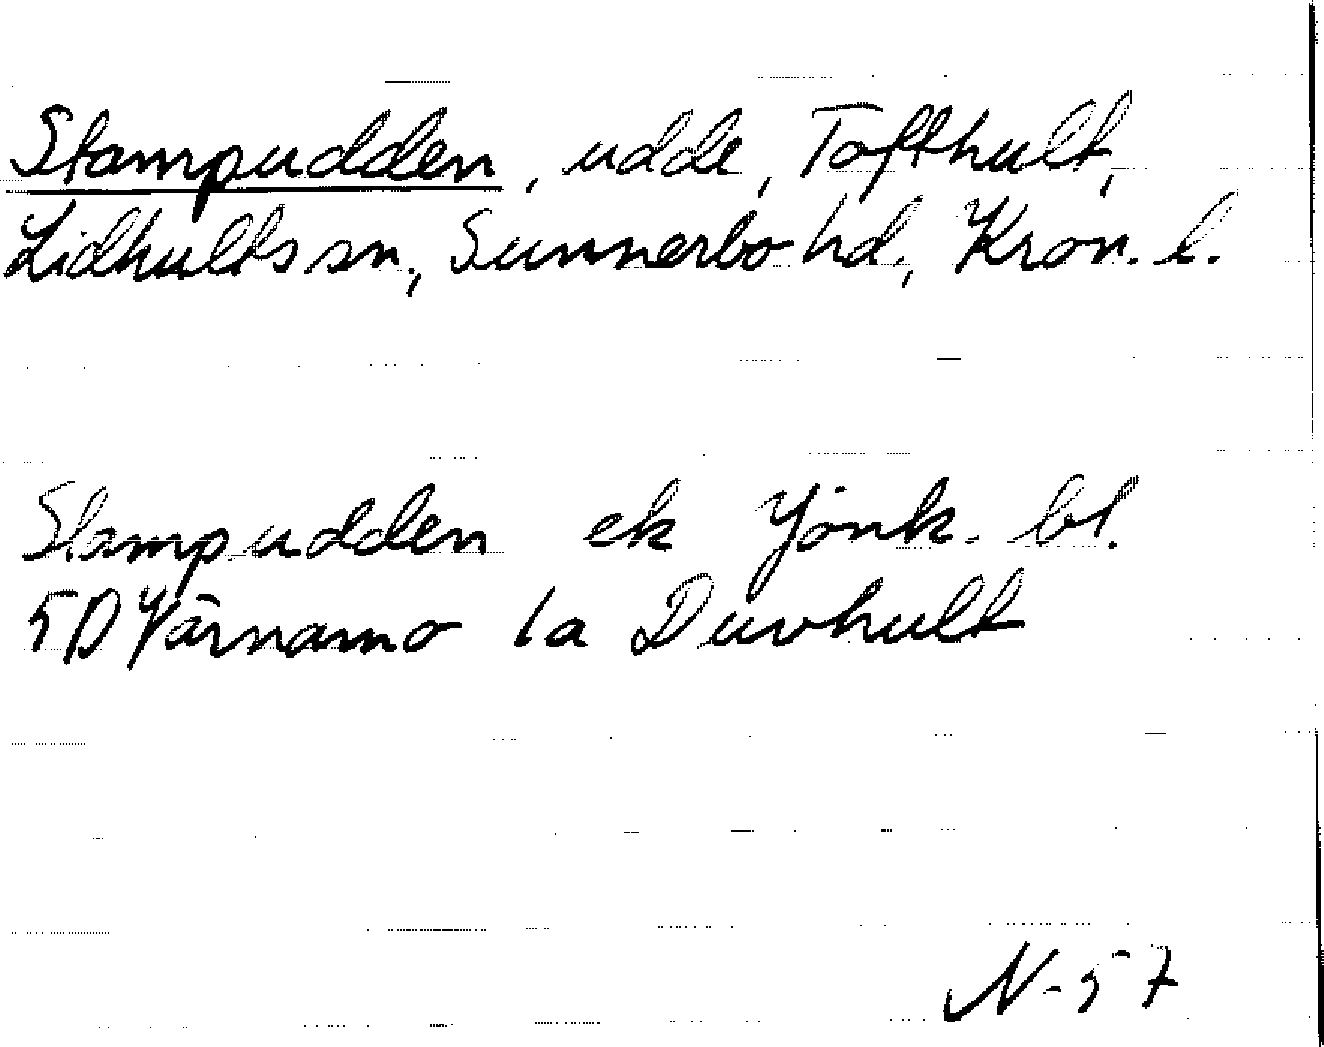 Stampudden, udde, Tofthult,
Lidhults sn, Sunnerbo hd, Kron. l.
Stampudden ek Jönk. bl.
5D Värnamo 1a Duvhult
N-57